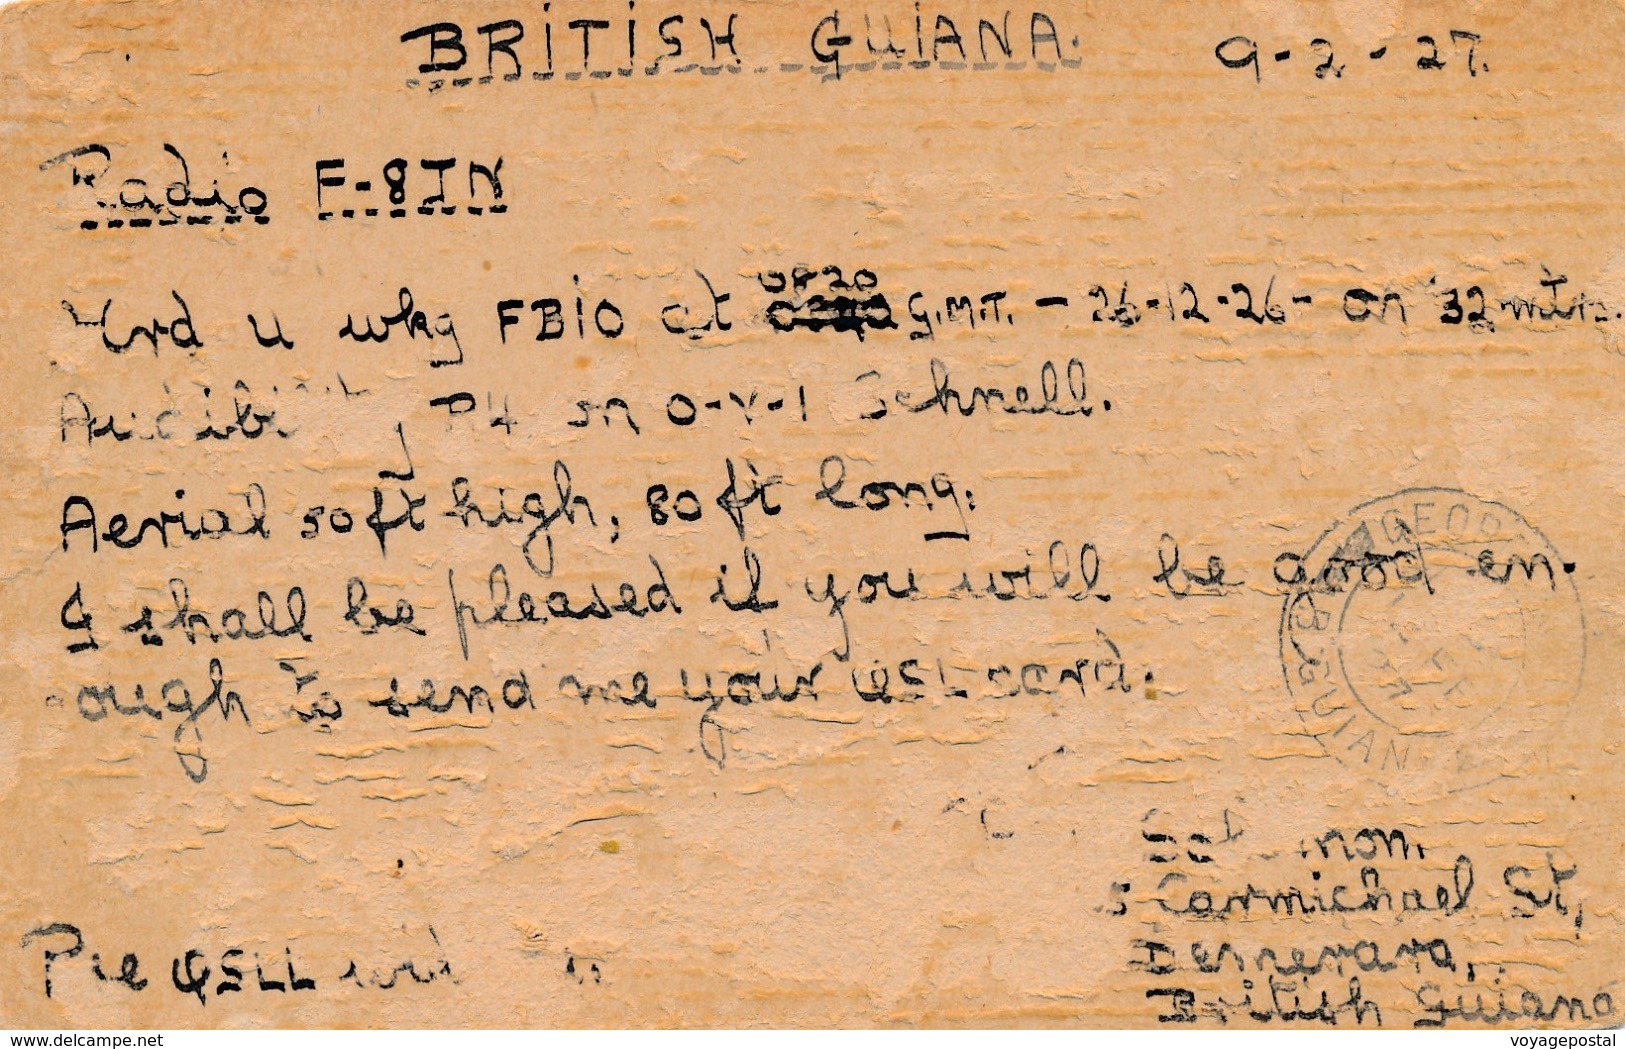 BRITISH GUIANA. 9-2-27.
Radio F-8IN
Hrd u wkg FB10 at G.M.T. - 26-12-26 - on 32 mtrs.
0820
Audibility R4 on O-V-1 Schnell.
Aerial 50 ft high, 80 ft long.
I shall be pleased if you will be good en-
ough to send me your QSL card.
GEO
GUIAN
Carmichael St,
Demerara,
British Guiana
Pse QSLL
www.delcampe.net
voyagepostal